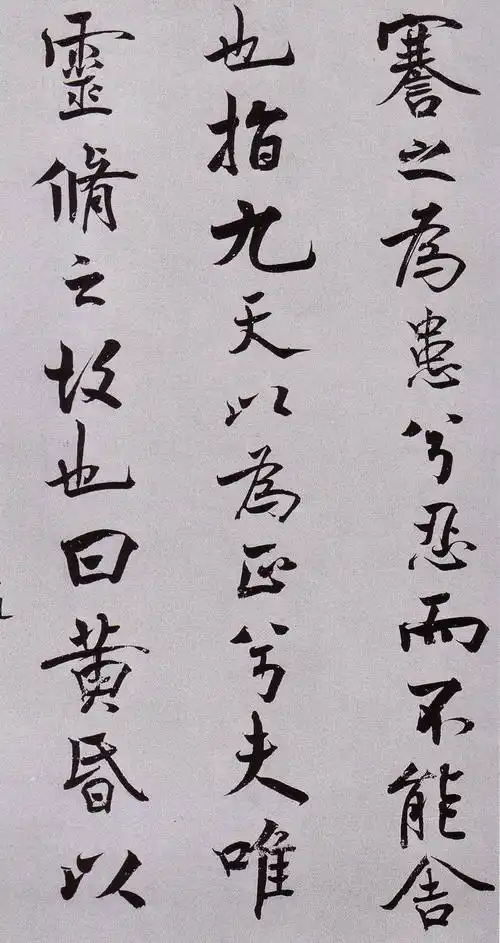 謇之為患兮忍而不能舍
也指九天以為正兮夫唯
靈脩之故也曰黃昏以